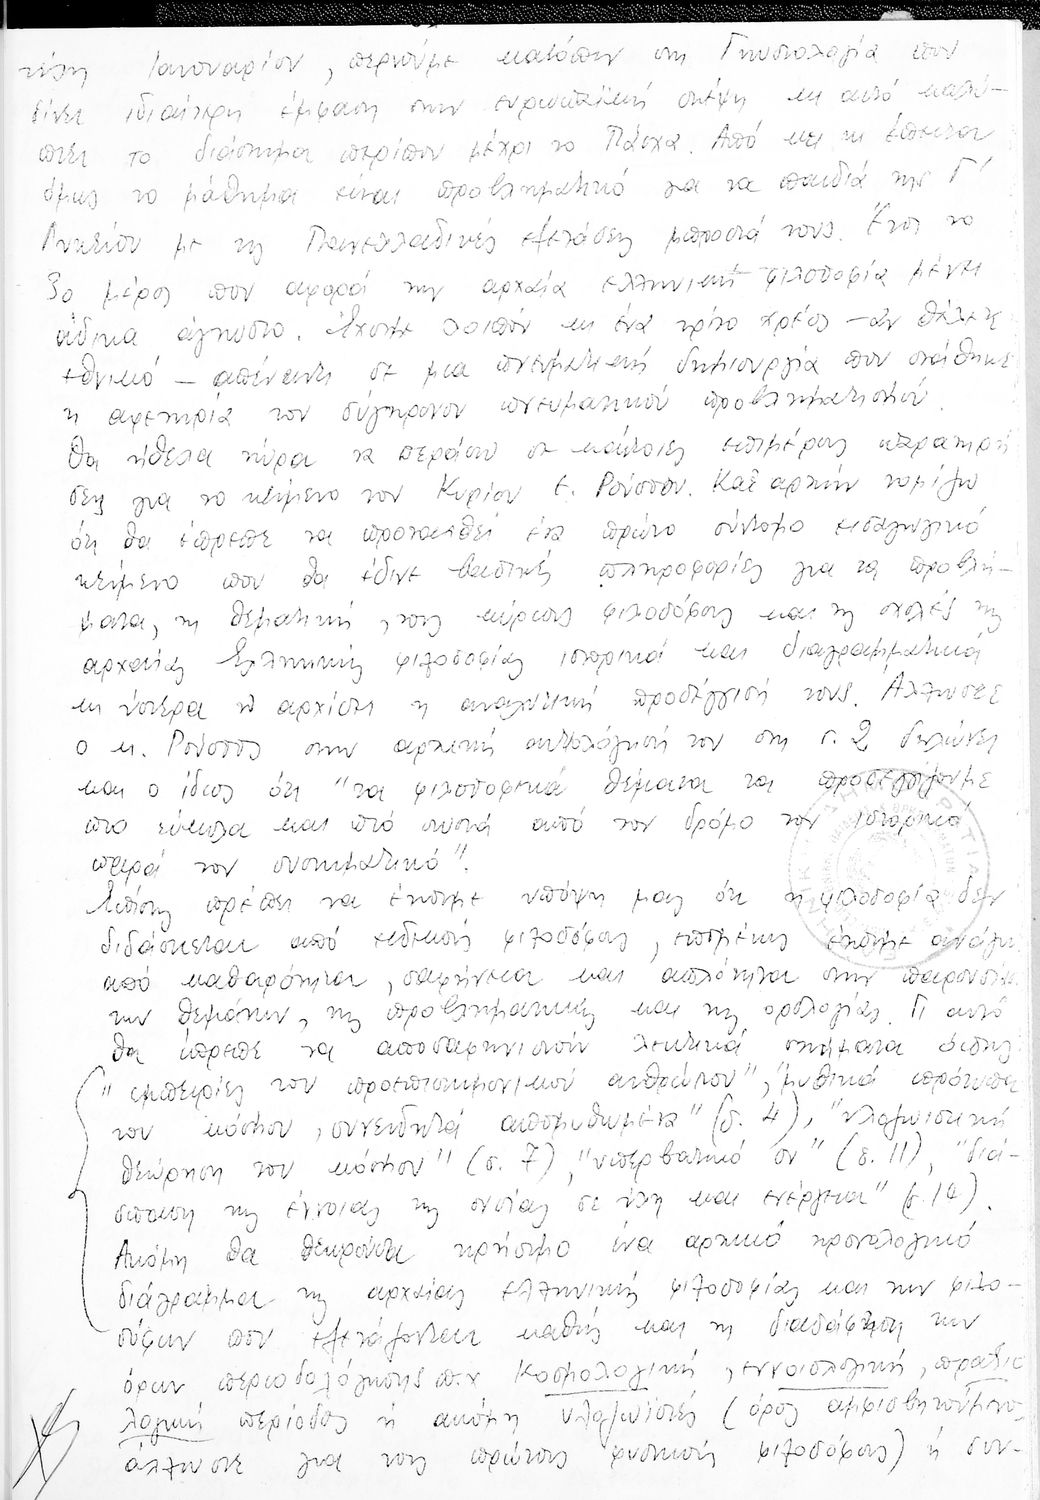 τέλη Ιανουαρίου, περνούμε κατόπιν στη Γνωσιολογία που
δίνει ιδιαίτερη έμφαση στην ευρωπαϊκή σκέψη κι αυτό καλύ-
πτει το διάστημα περίπου μέχρι το Πάσχα. Από και κι έπειτα
όμως το μάθημα είναι προβληματικό για τα παιδιά της Γ΄
Λυκείου με τις Πανελλαδικές εξετάσεις μπροστά τους. Έτσι το
3ο μέρος που αφορά την αρχαία ελληνική φιλοσοφία μένει
άδικα άγνωστο. Έχουμε λοιπόν κι ένα τρίτο χρέος – αν θέλετε
εθνικό – απέναντι σε μια πνευματική δημιουργία που στάθηκε
η αφετηρία του σύγχρονου πνευματικού προβληματισμού.
Θα ήθελα τώρα να περάσω σε κάποιες επιμέρους παρατηρή
σεις για το κείμενο του Κυρίου Ε. Ρούσσου. Κατ' αρχήν νομίζω
ότι θα έπρεπε να προταχθεί ένα πρώτο σύντομο εισαγωγικό
κείμενο που θα έδινε βασικές πληροφορίες για τα προβλή-
ματα, τη θεματική, τους κύριους φιλοσόφους και τις σχολές της
αρχαίας Ελληνικής φιλοσοφίας ιστορικά και διαγραμματικά
κι ύστερα ν' αρχίσει η αναλυτική προσέγγισή τους. Άλλωστε
ο κ. Ρούσσος στην αρχική αιτιολόγησή του στη σ. 2 δηλώνει
και ο ίδιος ότι "τα φιλοσοφικά θέματα τα προσεγγίζουμε
πιο εύκολα και πιό σωστά από τον δρόμο τον ιστορικό
παρά τον συστηματικό".
Επίσης πρέπει να έχουμε υπόψη μας ότι η φιλοσοφία δεν
διδάσκεται από ειδικούς φιλοσόφους, επομένως έχουμε ανάγκη
από καθαρότητα, σαφήνεια και απλότητα στην παρουσία
των θεμάτων, της προβληματικής και της ορολογίας. Γι αυτό
θα έπρεπε να αποσαφηνιστούν λεκτικά σχήματα όπως
"εμπειρίες του προεπιστημονικού ανθρώπου", "μυθικά πρότυπα
του κόσμου, συνειδητά απομυθωμένα" (σ. 4), "υλοζωιστική
θεώρηση του κόσμου" (σ. 7), "υπερβατικό ον" (σ. 11), "διά-
σπαση της έννοιας της ουσίας σε ύλη και ενέργεια" (σ. 14).
Ακόμη θα θεωρούσα χρήσιμο ένα αρχικό χρονολογικό
διάγραμμα της αρχαίας ελληνικής φιλοσοφίας και των φιλο-
σόφων που εξετάζονται καθώς και τη διασάφηση των
όρων περιοδολόγησης π.χ κοσμολογική, εννοιολογική, πραξιο
λογική περίοδος ή ακόμη υλοζωιστές (όρος αμφισβητούμενος
άλλωστε για τους πρώτους φυσικούς φιλοσόφους) ή συν-